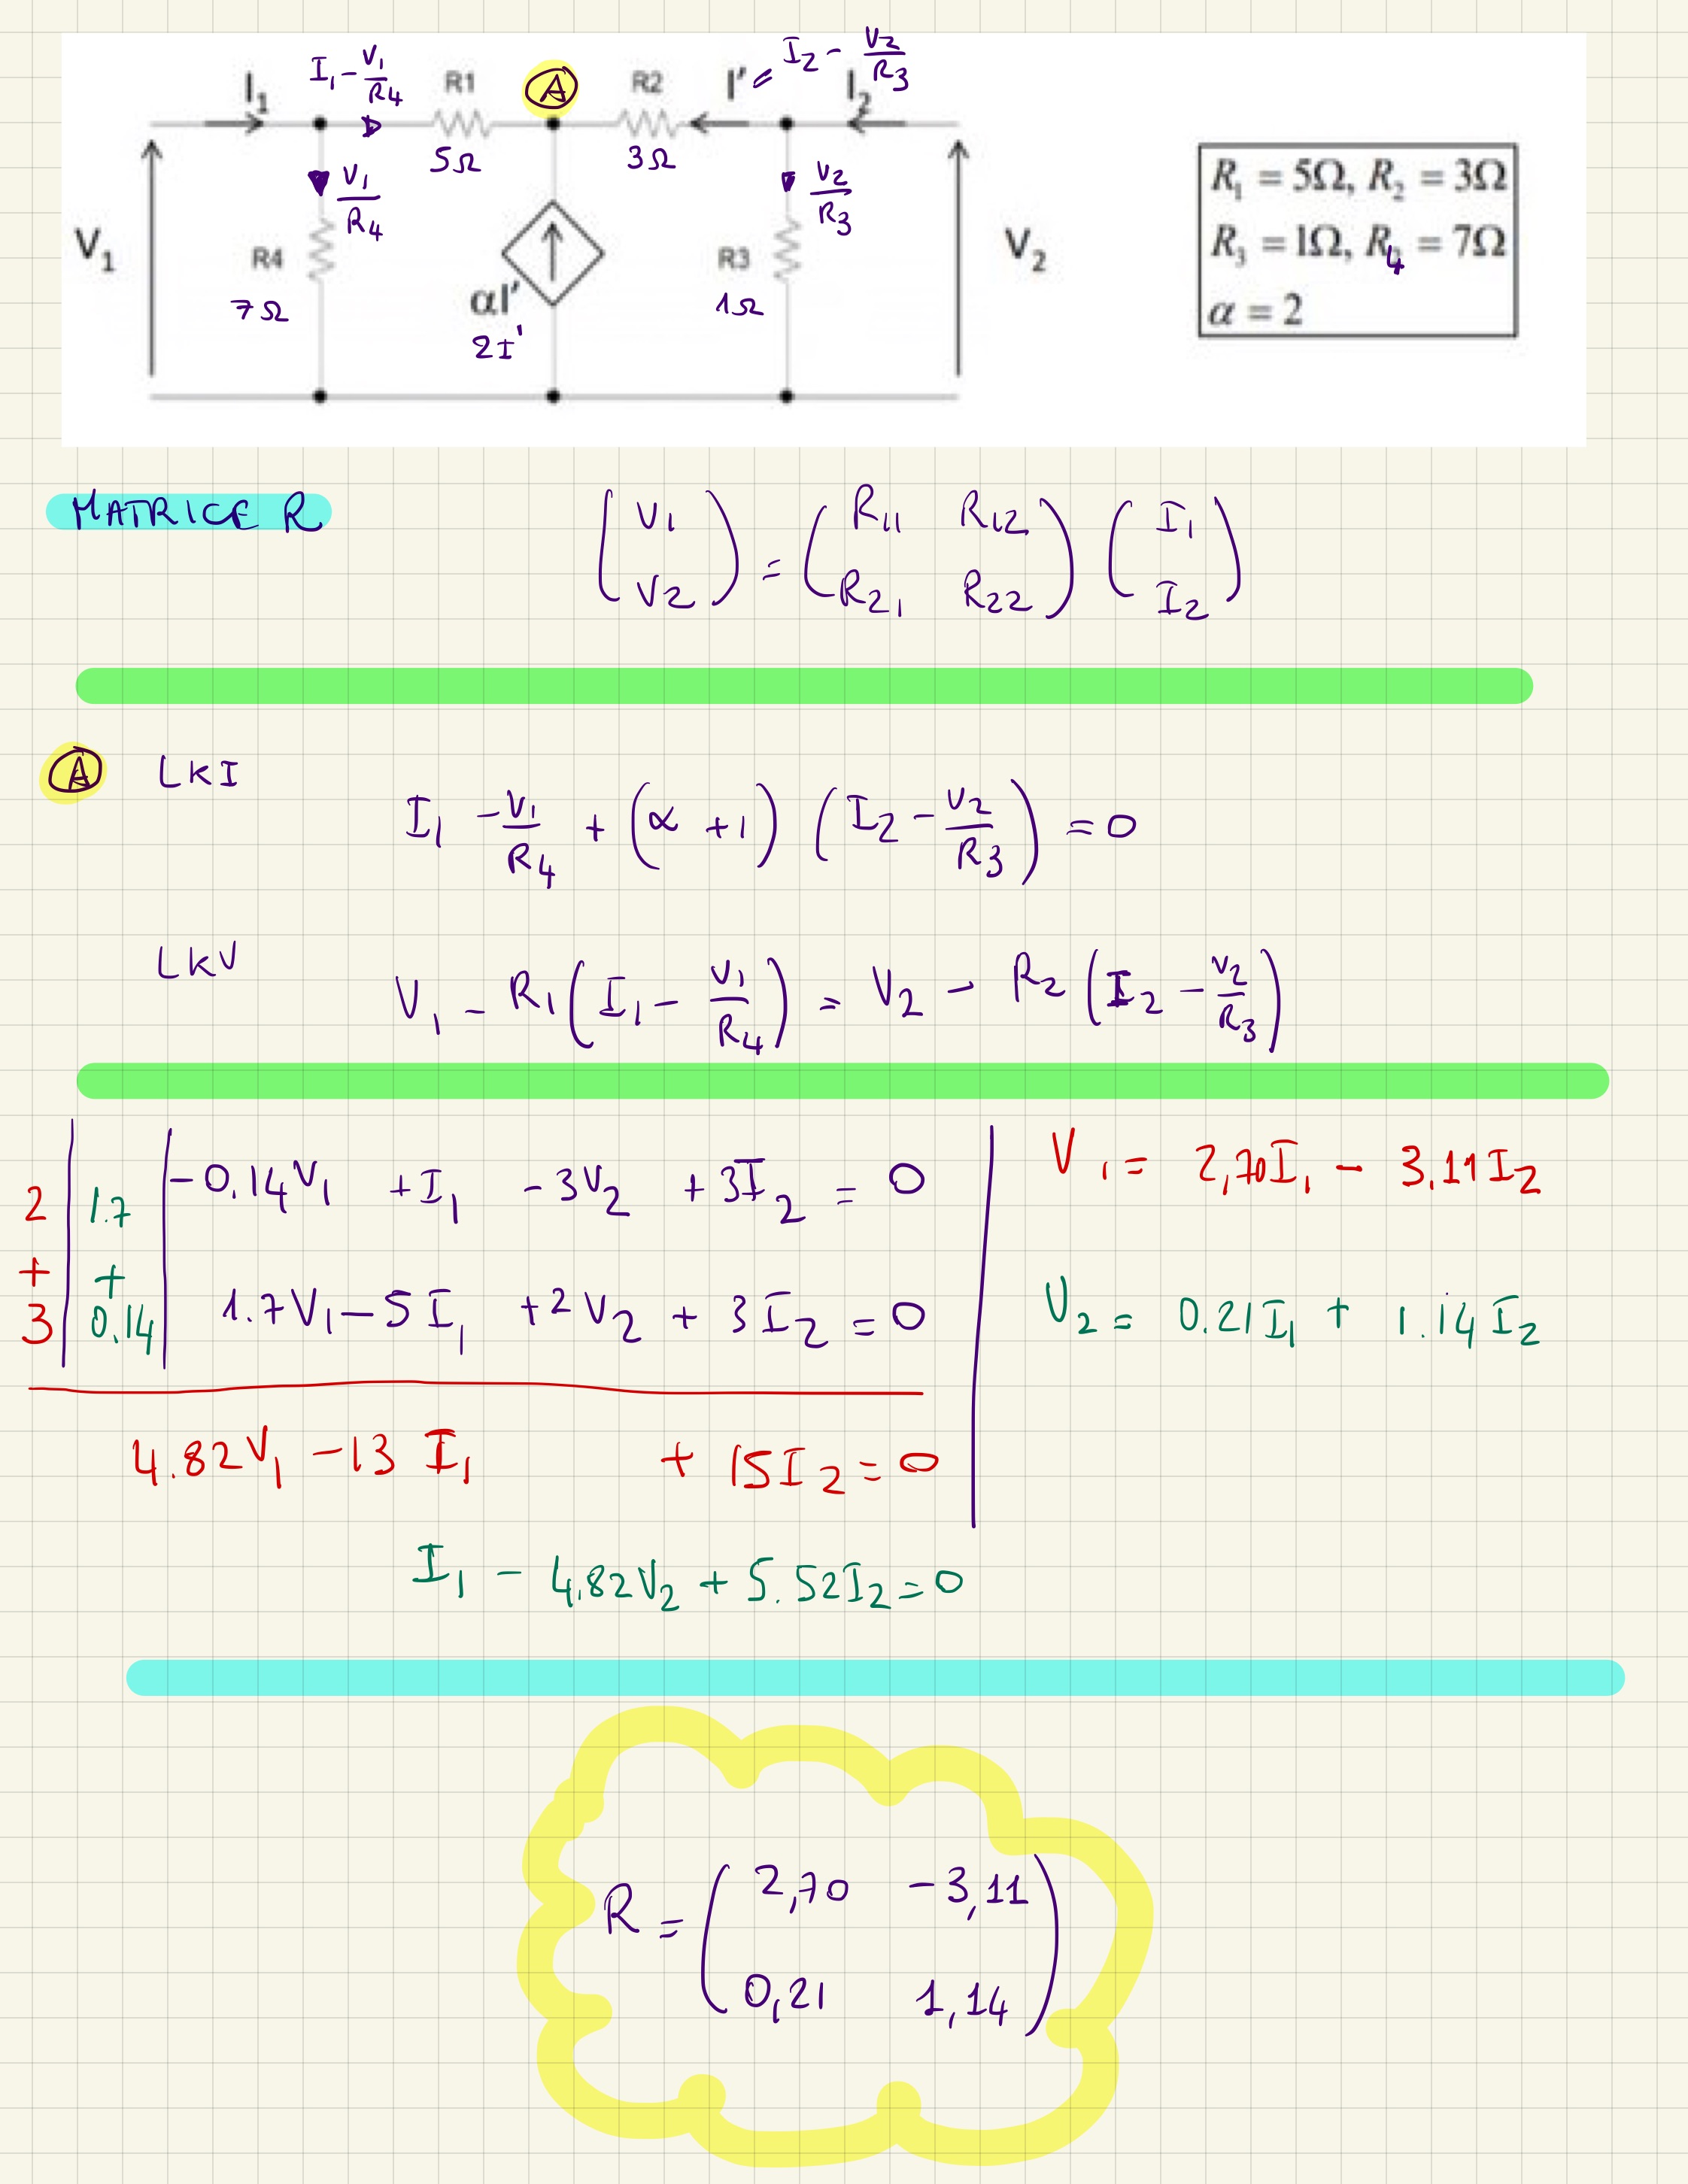 I₁ - V₁/R₄
I' = I₂ - V₂/R₃
I₁ R1 A R2 I₂
5Ω 3Ω
V₁/R₄ V₂/R₃
V₁ R4 αI' R3 V₂
7Ω 2I' 1Ω
R₁ = 5Ω, R₂ = 3Ω
R₃ = 1Ω, R₄ = 7Ω
α = 2
MATRICE R
(V₁ V₂) = (R₁₁ R₁₂ R₂₁ R₂₂) (I₁ I₂)
A LKI
I₁ - V₁/R₄ + (α + 1) (I₂ - V₂/R₃) = 0
LKV
V₁ - R₁(I₁ - V₁/R₄) = V₂ - R₂(I₂ - V₂/R₃)
2 | 1.7 | -0.14V₁ + I₁ - 3V₂ + 3I₂ = 0
+ +
3 | 0.14 | 1.7V₁ - 5I₁ + 2V₂ + 3I₂ = 0
4.82V₁ - 13 I₁ + 15I₂ = 0
I₁ - 4.82V₂ + 5.52I₂ = 0
V₁ = 2,70I₁ - 3,11I₂
V₂ = 0.21I₁ + 1.14I₂
R = (2,70 -3,11
0,21 1,14)